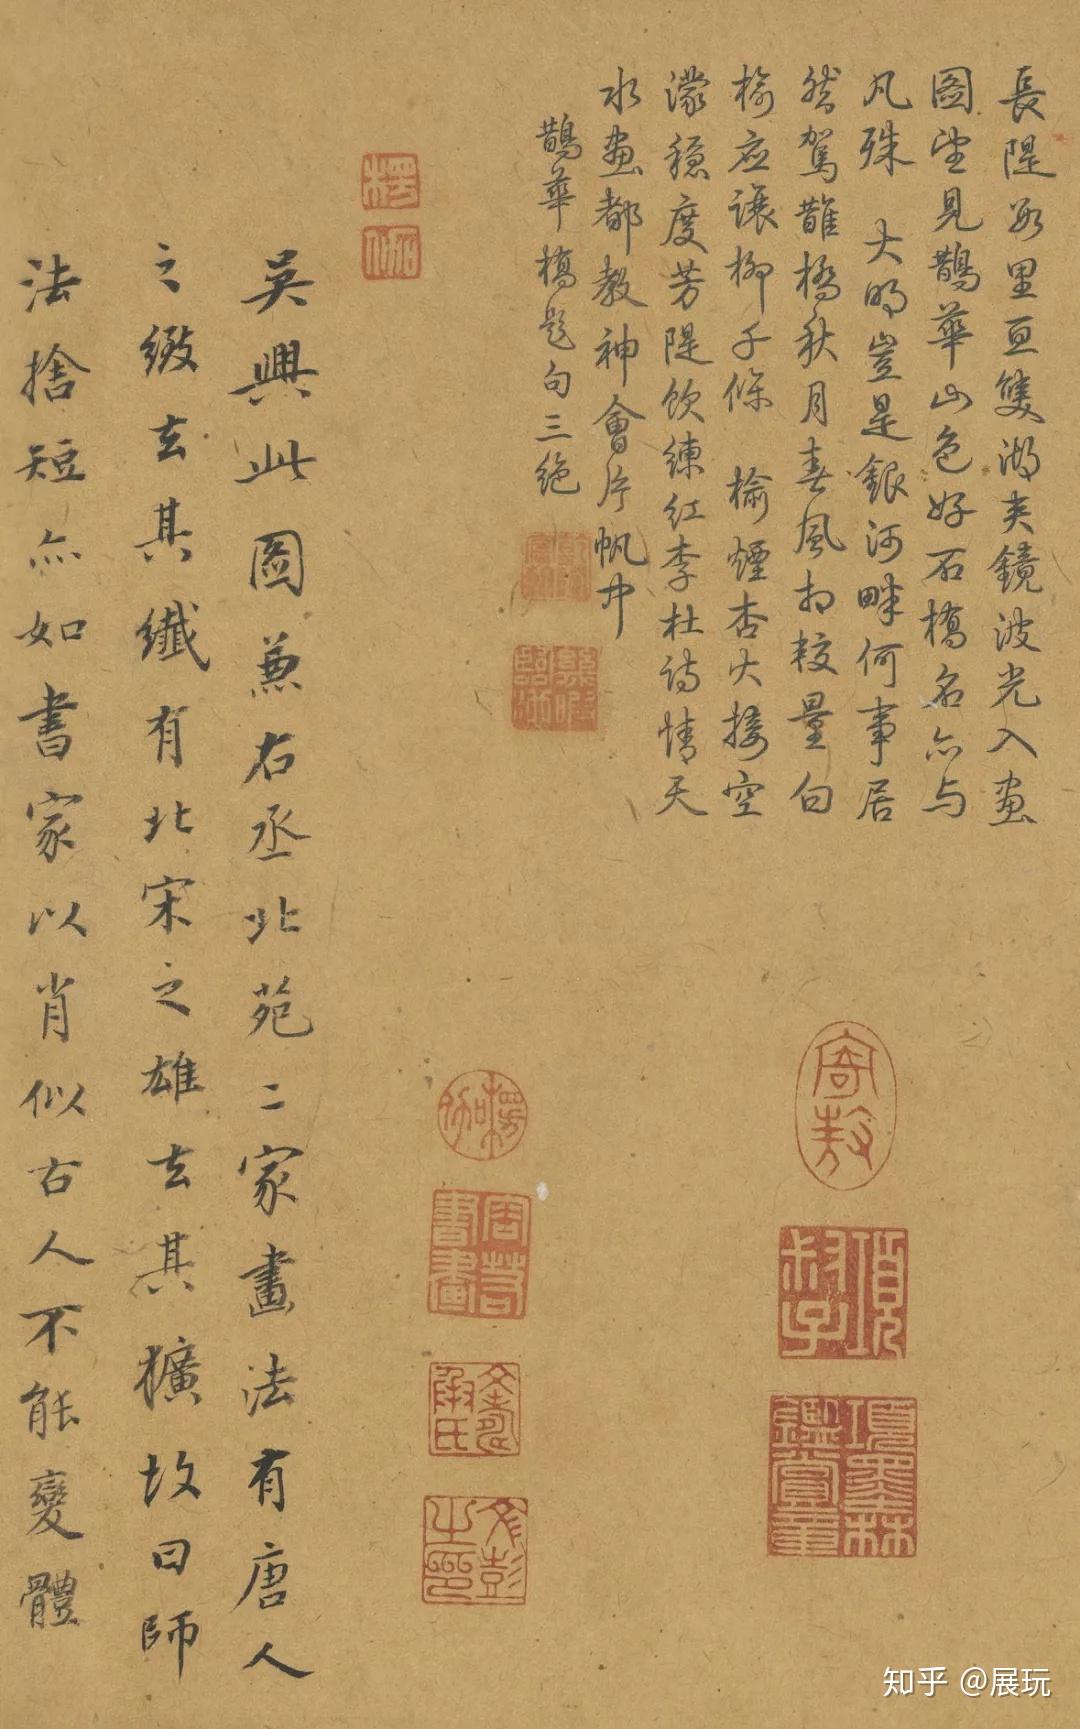 長隄數里亘雙湖夾鏡波光入畫
圖望見鵲華山色好石橋名亦與
凡殊 大明豈是銀河畔何事居
然駕鵲橋秋月春風相較量白
榆應讓柳千條 榆煙杏火接空
濛穩度芳隄飲練紅李杜詩情天
水畫都教神會片帆中
鵲華橋題句三絶
乾隆宸翰
楞伽
吳興此圖兼右丞北苑二家畫法有唐人
之緻去其纖有北宋之雄去其獷故曰師
法捨短亦如書家以肖似古人不能變體
寄敖
項叔子
項墨林鑑賞章
楞伽
文彭之印
知乎 @展玩